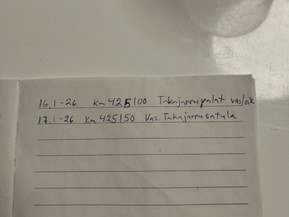 16.1-26 km 425100 Takajarrupalat vas/oik
17.1-26 km 425150 Vas. Takajarrusatula